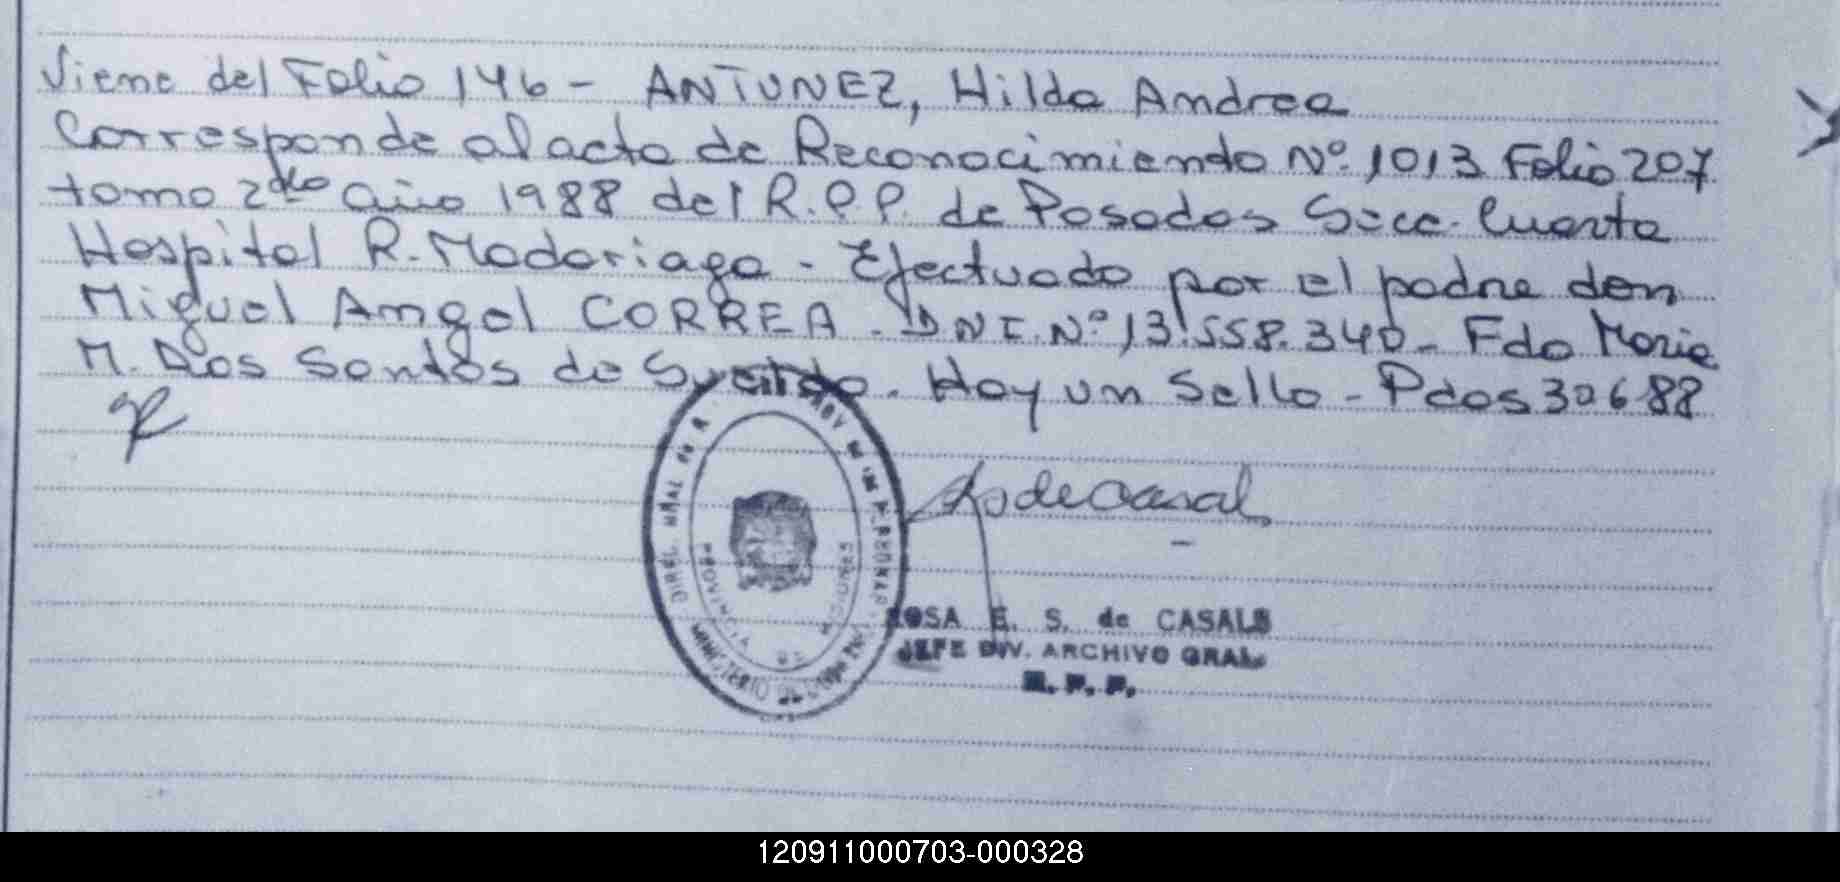 Viene del Folio 146 - ANTUNEZ, Hilda Andrea
Corresponde al acta de Reconocimiendo Nº 1013 Folio 207
tomo 2do año 1988 del R.P.P. de Posadas Secc. Cuarta
Hospital R. Madariaga - Efectuado por el padre don
Miguel Angel CORREA - DNI. Nº 13.558.340 - Fdo Maria
M. Dos Santos de . Hay un Sello - Pdas 30 6 88
PROVINCIA DE MISIONES
ROSA E. S. de CASALS
JEFE DIV. ARCHIVO GRAL.
R. P. P.
120911000703-000328